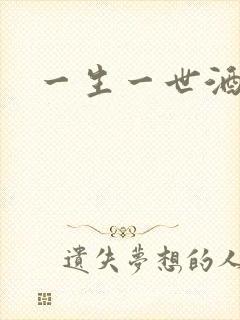 一生一世酒
遺失夢想的人